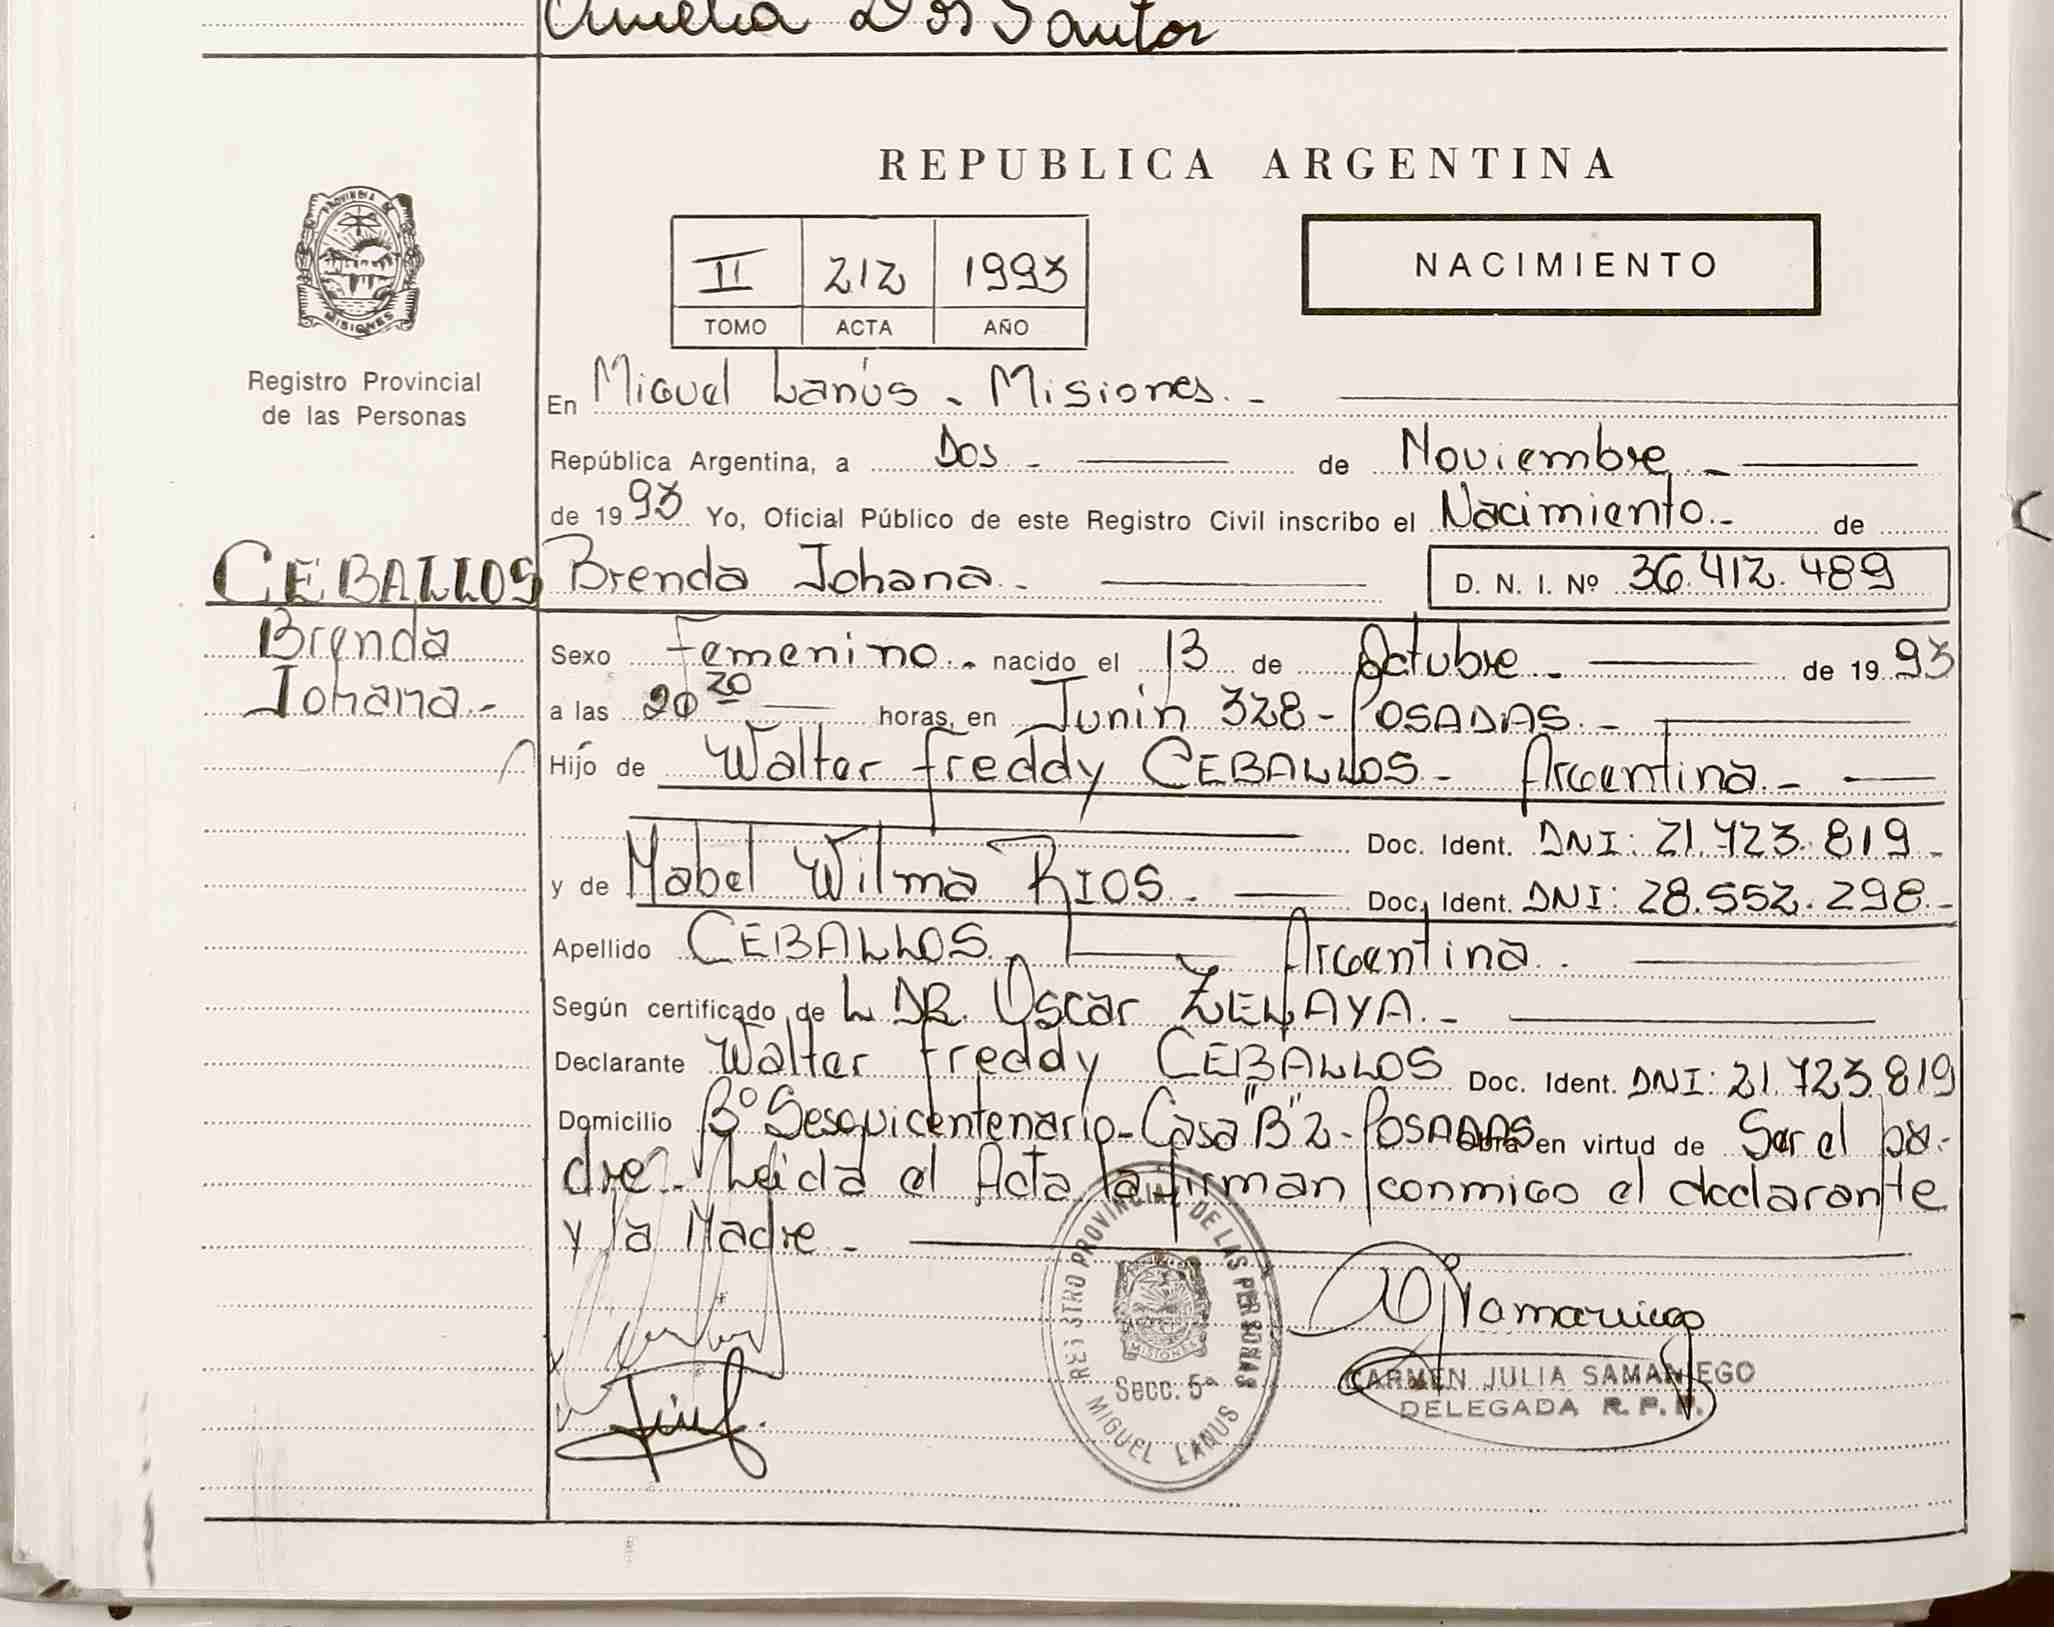 Amelia Dos Santos
REPUBLICA ARGENTINA
PROVINCIA DE
MISIONES
II 212 1993
TOMO ACTA AÑO
NACIMIENTO
Registro Provincial
de las Personas
En Miguel Lanús - Misiones. -
República Argentina, a Dos - de Noviembre -
de 1993 Yo, Oficial Público de este Registro Civil inscribo el Nacimiento.- de
CEBALLOS Brenda Johana.- D. N. I. Nº 36.412.489
Brenda
Johana.-
Sexo Femenino.- nacido el 13 de Octubre - de 1993
a las 20 20 horas, en Junín 328 - POSADAS. -
Hijo de Walter Freddy CEBALLOS - Argentina. -
Doc. Ident. DNI: 21.723.819 -
y de Mabel Wilma RIOS. - Doc. Ident. DNI: 28.552.298 -
Apellido CEBALLOS. Argentina.
Según certificado de L DR. Oscar ZELAYA. -
Declarante Walter Freddy CEBALLOS Doc. Ident. DNI: 21.723.819
Domicilio Bº Sesquicentenario - Casa "B" 2 - POSADAS Obra en virtud de Ser el pa-
dre. Leida el Acta la firman conmigo el declarante
y la Madre. -
REGISTRO PROVINCIAL DE LAS PERSONAS
MISIONES
Secc. 5ª
MIGUEL LANUS
CARMEN JULIA SAMANIEGO
DELEGADA R. P. P.